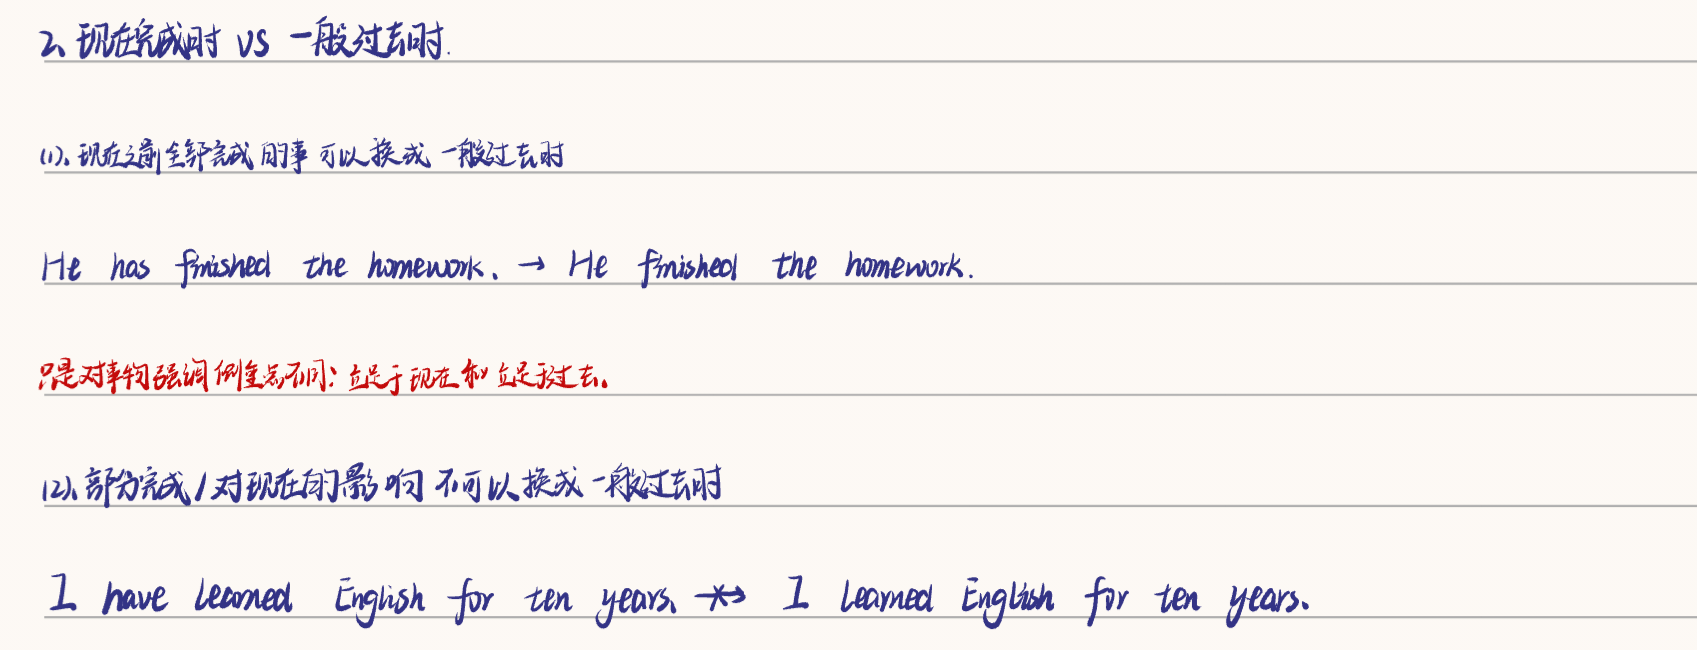 2、现在完成时 VS 一般过去时.
(1)、现在之前全部完成的事可以换成 一般过去时
He has finished the homework. → He finished the homework.
只是对事物强调侧重点不同: 立足于现在和立足于过去.
(2)、部分完成/对现在的影响 不可以换成一般过去时
I have learned English for ten years. ↛ I learned English for ten years.